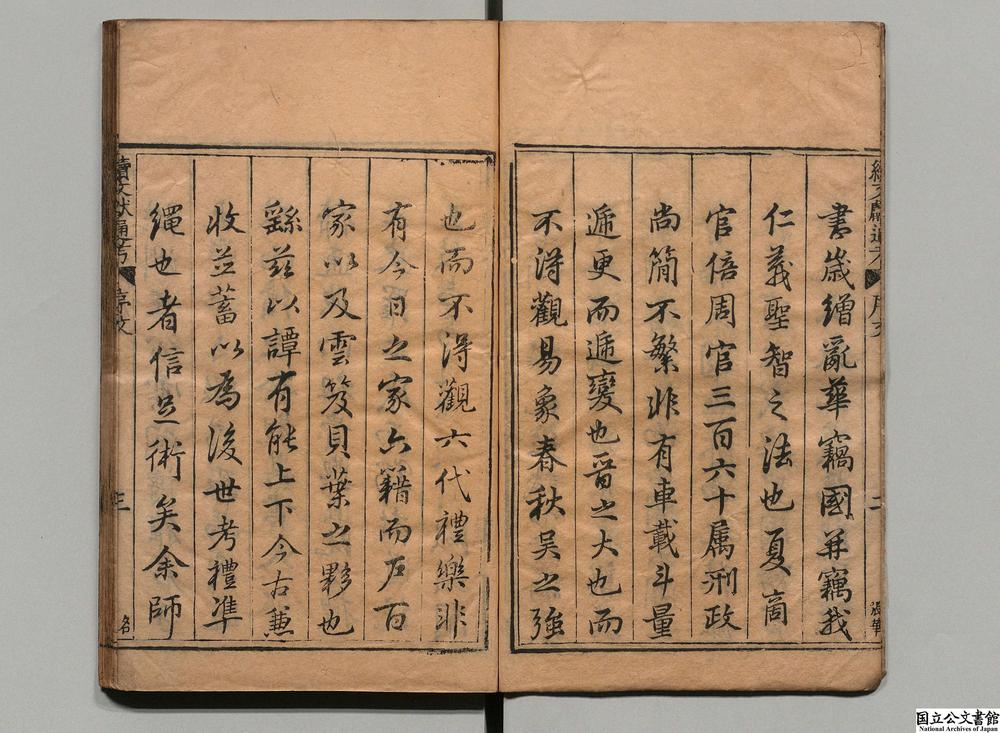 書歲繒亂華竊國并竊我
仁義聖智之法也夏商
官倍周官三百六十属刑政
尚簡不繁非有車載斗量
遞更而遞變也晉之大也而
不淂觀易象春秋吴之強
也而不淂觀六代禮樂非
有今日之家六籍而户百
家以及雲笈貝葉之夥也
繇兹以譚有能上下今古蒹
收並蓄以為後世考禮準
繩也者信是術矣余師
續文獻通考 序文 二
續文獻通考 序文 三
国立公文書館
National Archives of Japan